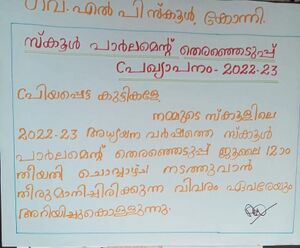 ഗവ. എൽ പി സ്കൂൾ, കോന്നി.
സ്കൂൾ പാർലമെന്റ് തെരഞ്ഞെടുപ്പ്
പ്രഖ്യാപനം - 2022-23
പ്രിയപ്പെട്ട കുട്ടികളേ,
നമ്മുടെ സ്കൂളിലെ
2022-23 അധ്യയന വർഷത്തെ സ്കൂൾ
പാർലമെന്റ് തെരഞ്ഞെടുപ്പ് ജൂലൈ 12ാം
തീയതി ചൊവ്വാഴ്ച നടത്തുവാൻ
തീരുമാനിച്ചിരിക്കുന്ന വിവരം ഏവരേയും
അറിയിച്ചുകൊള്ളുന്നു.